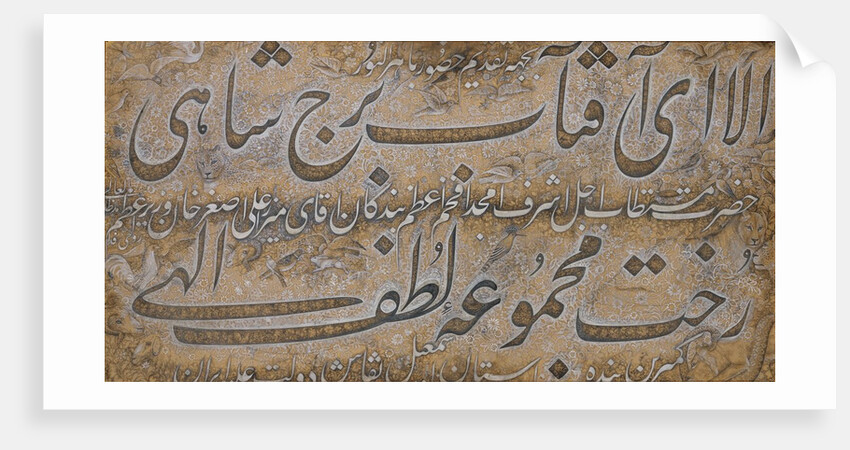 بجهه تقدیم حضور باهر النور
الا ای آفتاب برج شاهی
حضرت مستطاب اجل اشرف امجد افخم اعظم بندگان اقای میرزا علی اصغر خان وزیر اعظم
رخت مجموعهٔ لطف الهی
کمترین بنده آستان اسمعیل نقاش دولت علیه ایران